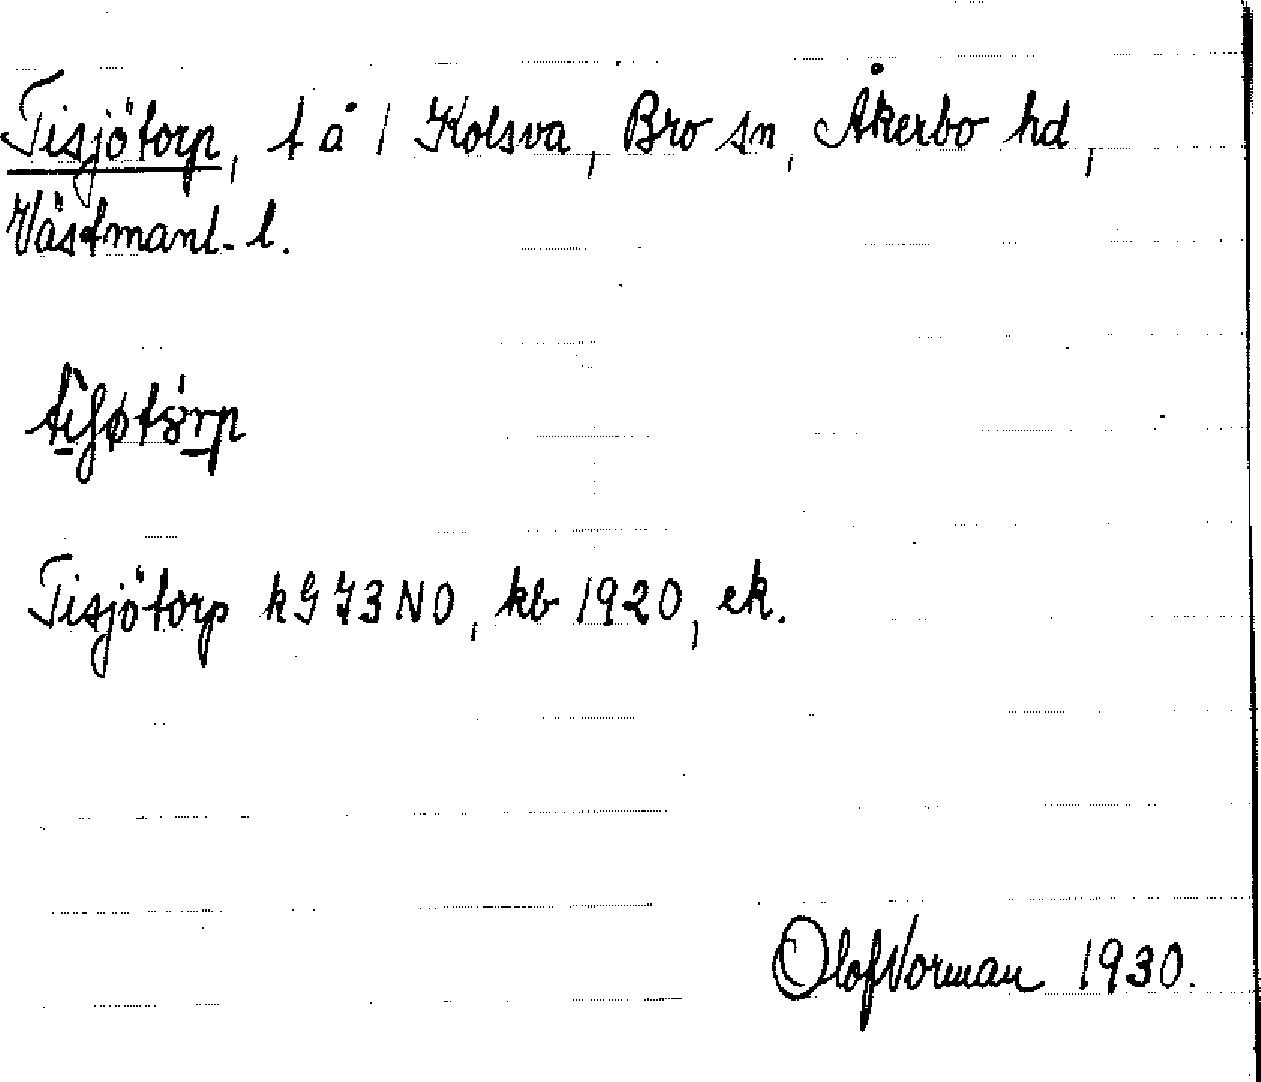 Tisjötorp, t å 1 Kolsva, Bro sn, Åkerbo hd,
Västmanl. l.
Tisjötorp kG J3 NO, kb 1920, ek.
Olof Norman 1930.